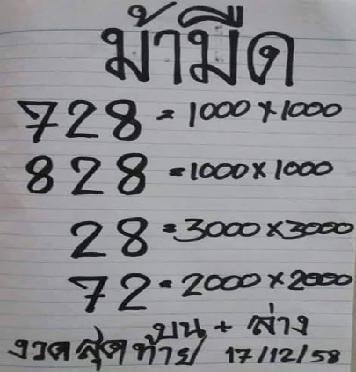 ม้ามืด
728 = 1000 x 1000
828 = 1000 x 1000
28 = 3000 x 3000
72 = 2000 x 2000
บน + ล่าง
งวดสุดท้าย 17/12/58